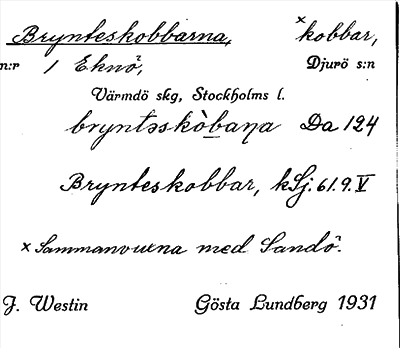 Brynteskobbarna, ×kobbar,
n:r 1 Eknö, Djurö s:n
Värmdö skg, Stockholms l.
bryntəskòbaņa Da 124
Brynteskobbar, kSj. 61.9.V
× Sammanvuxna med Sandö.
J. Westin Gösta Lundberg 1931